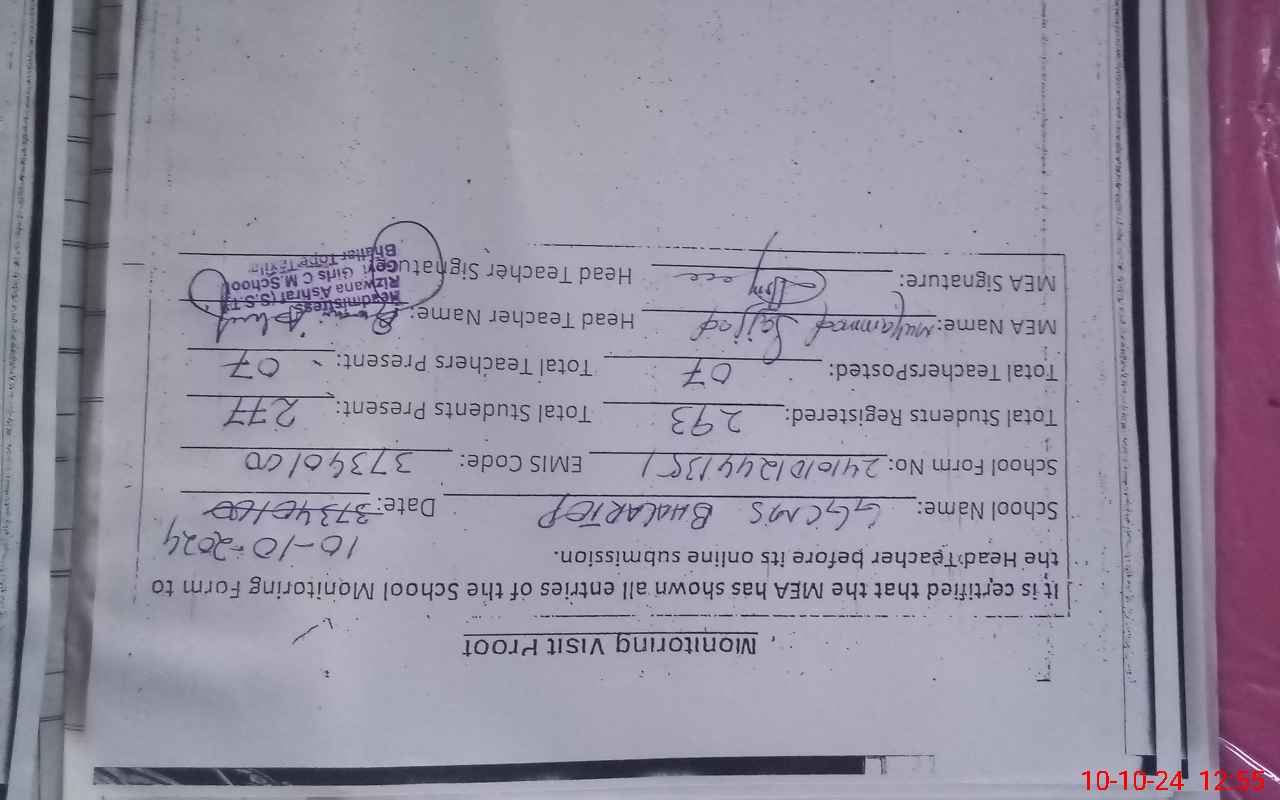 Monitoring Visit Proof
It is certified that the MEA has shown all entries of the School Monitoring Form to
the Head Teacher before its online submission.
10-10-2024
School Name: GGCMS BHALARTOP Date: 37340100
School Form No: EMIS Code: 37340100
Total Students Registered: 293 Total Students Present: 277
Total TeachersPosted: 07 Total Teachers Present: 07
MEA Name: Muhammad Sajjad Head Teacher Name:
MEA Signature: Head Teacher Signature
Headmistress
Rizwana Ashraf (S.S.T)
Govt Girls C.M.School
Tope
10-10-24 12:55